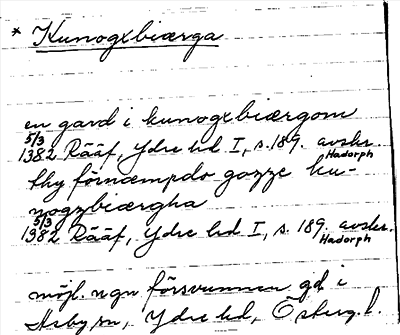 * Kunogxbiærga
en gard i kunogxbiærgom
5/3
1382 Rääf, Ydre hd I, s. 189. avskr.
Hadorph
thy förnæmpdo gozze ku-
nogzbiærgha
5/3
1382 Rääf, Ydre hd I, s. 189. avskr.
Hadorph
möjl. ngn försvunnen gd i
Asby sn, Ydre hd, Österg. l.